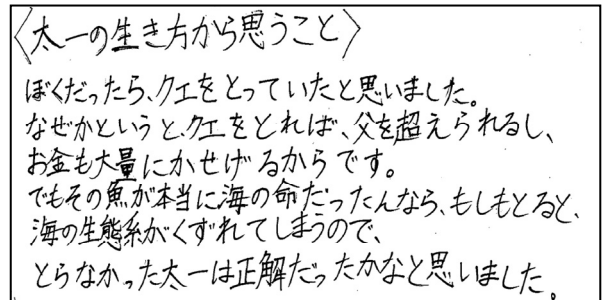 〈太一の生き方から思うこと〉
ぼくだったら、クエをとっていたと思いました。
なぜかというと、クエをとれば、父を超えられるし、
お金も大量にかせげるからです。
でもその魚が本当に海の命だったんなら、もしもとると、
海の生態系がくずれてしまうので、
とらなかった太一は正解だったかなと思いました。